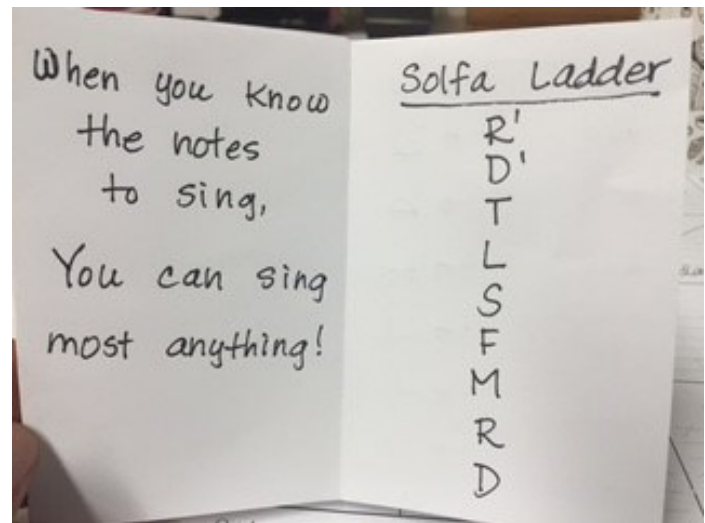 When you know
the notes
to sing,
You can sing
most anything!
Solfa Ladder
R'
D'
T
L
S
F
M
R
D